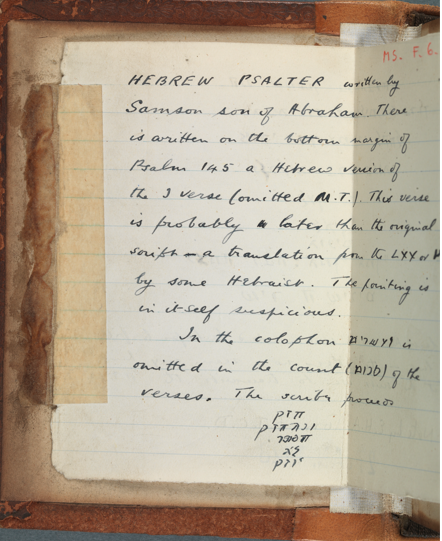 MS. F. 6.
HEBREW PSALTER written by
Samson son of Abraham. There
is written on the bottom margin of
Psalm 145 a Hebrew version of
the J verse (omitted M.T.). This verse
is probably later than the original
script – a translation from the LXX or
by some Hebraist. The pointing is
in itself suspicious.
In the colophon ועשרים is
omitted in the count (סכום) of the
verses. The scribe
חזק
ונתחזק
הסופר
יזיק